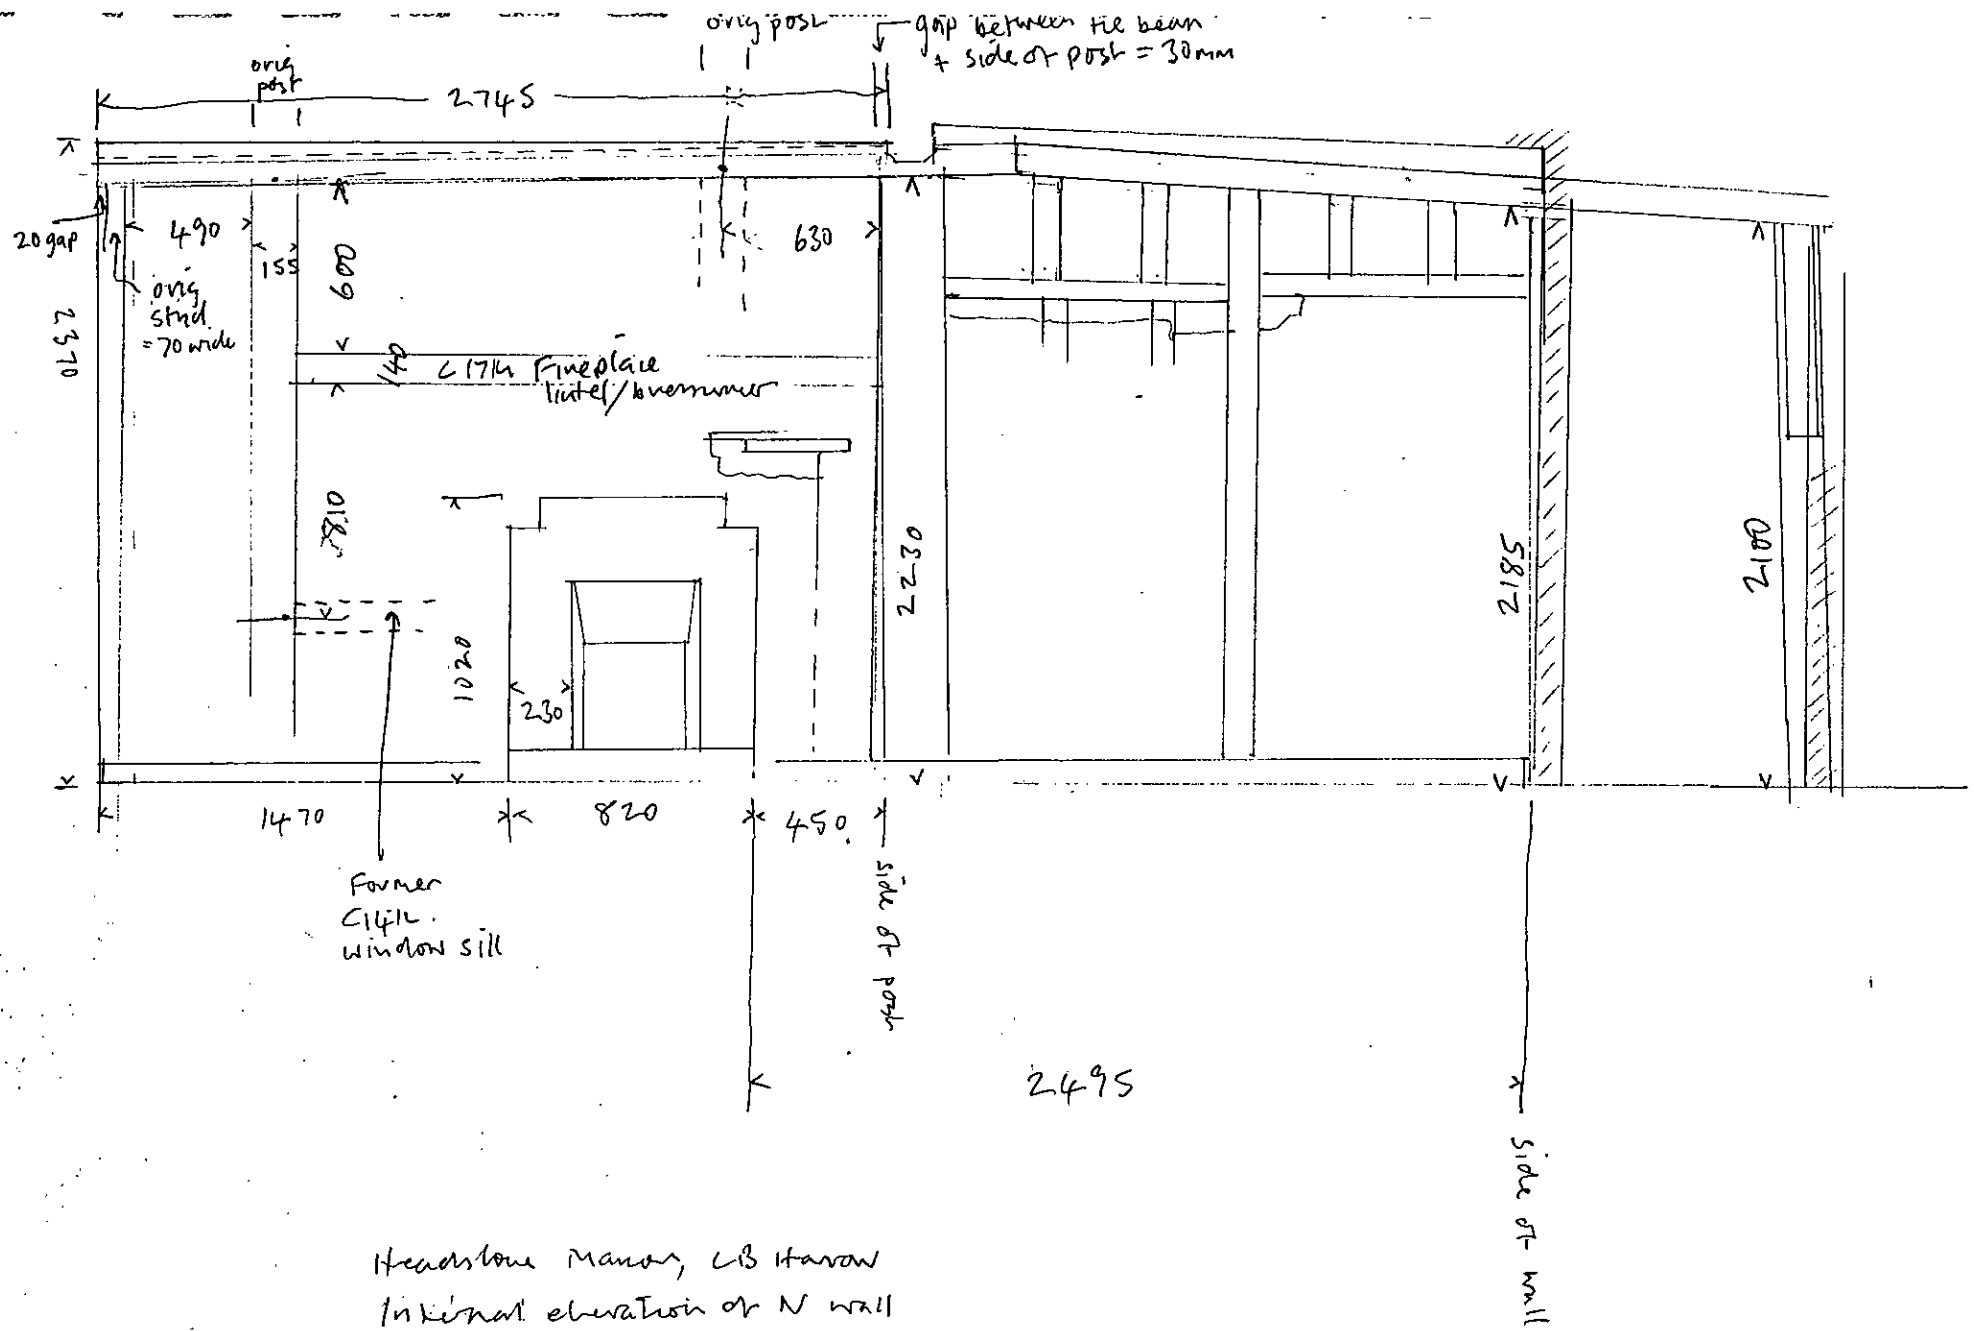 orig post
gap between tie beam
+ side of post = 30mm
orig
post
2745
20 gap
490
155
600
630
orig
stud
= 70 wide
2370
140
C17th Fireplace
lintel/bressumer
810
1020
230
2230
2185
2100
1470
820
450
Former
C14th.
window sill
side of post
2495
side of wall
Headstone Manor, LB Harrow
Internal elevation of N wall